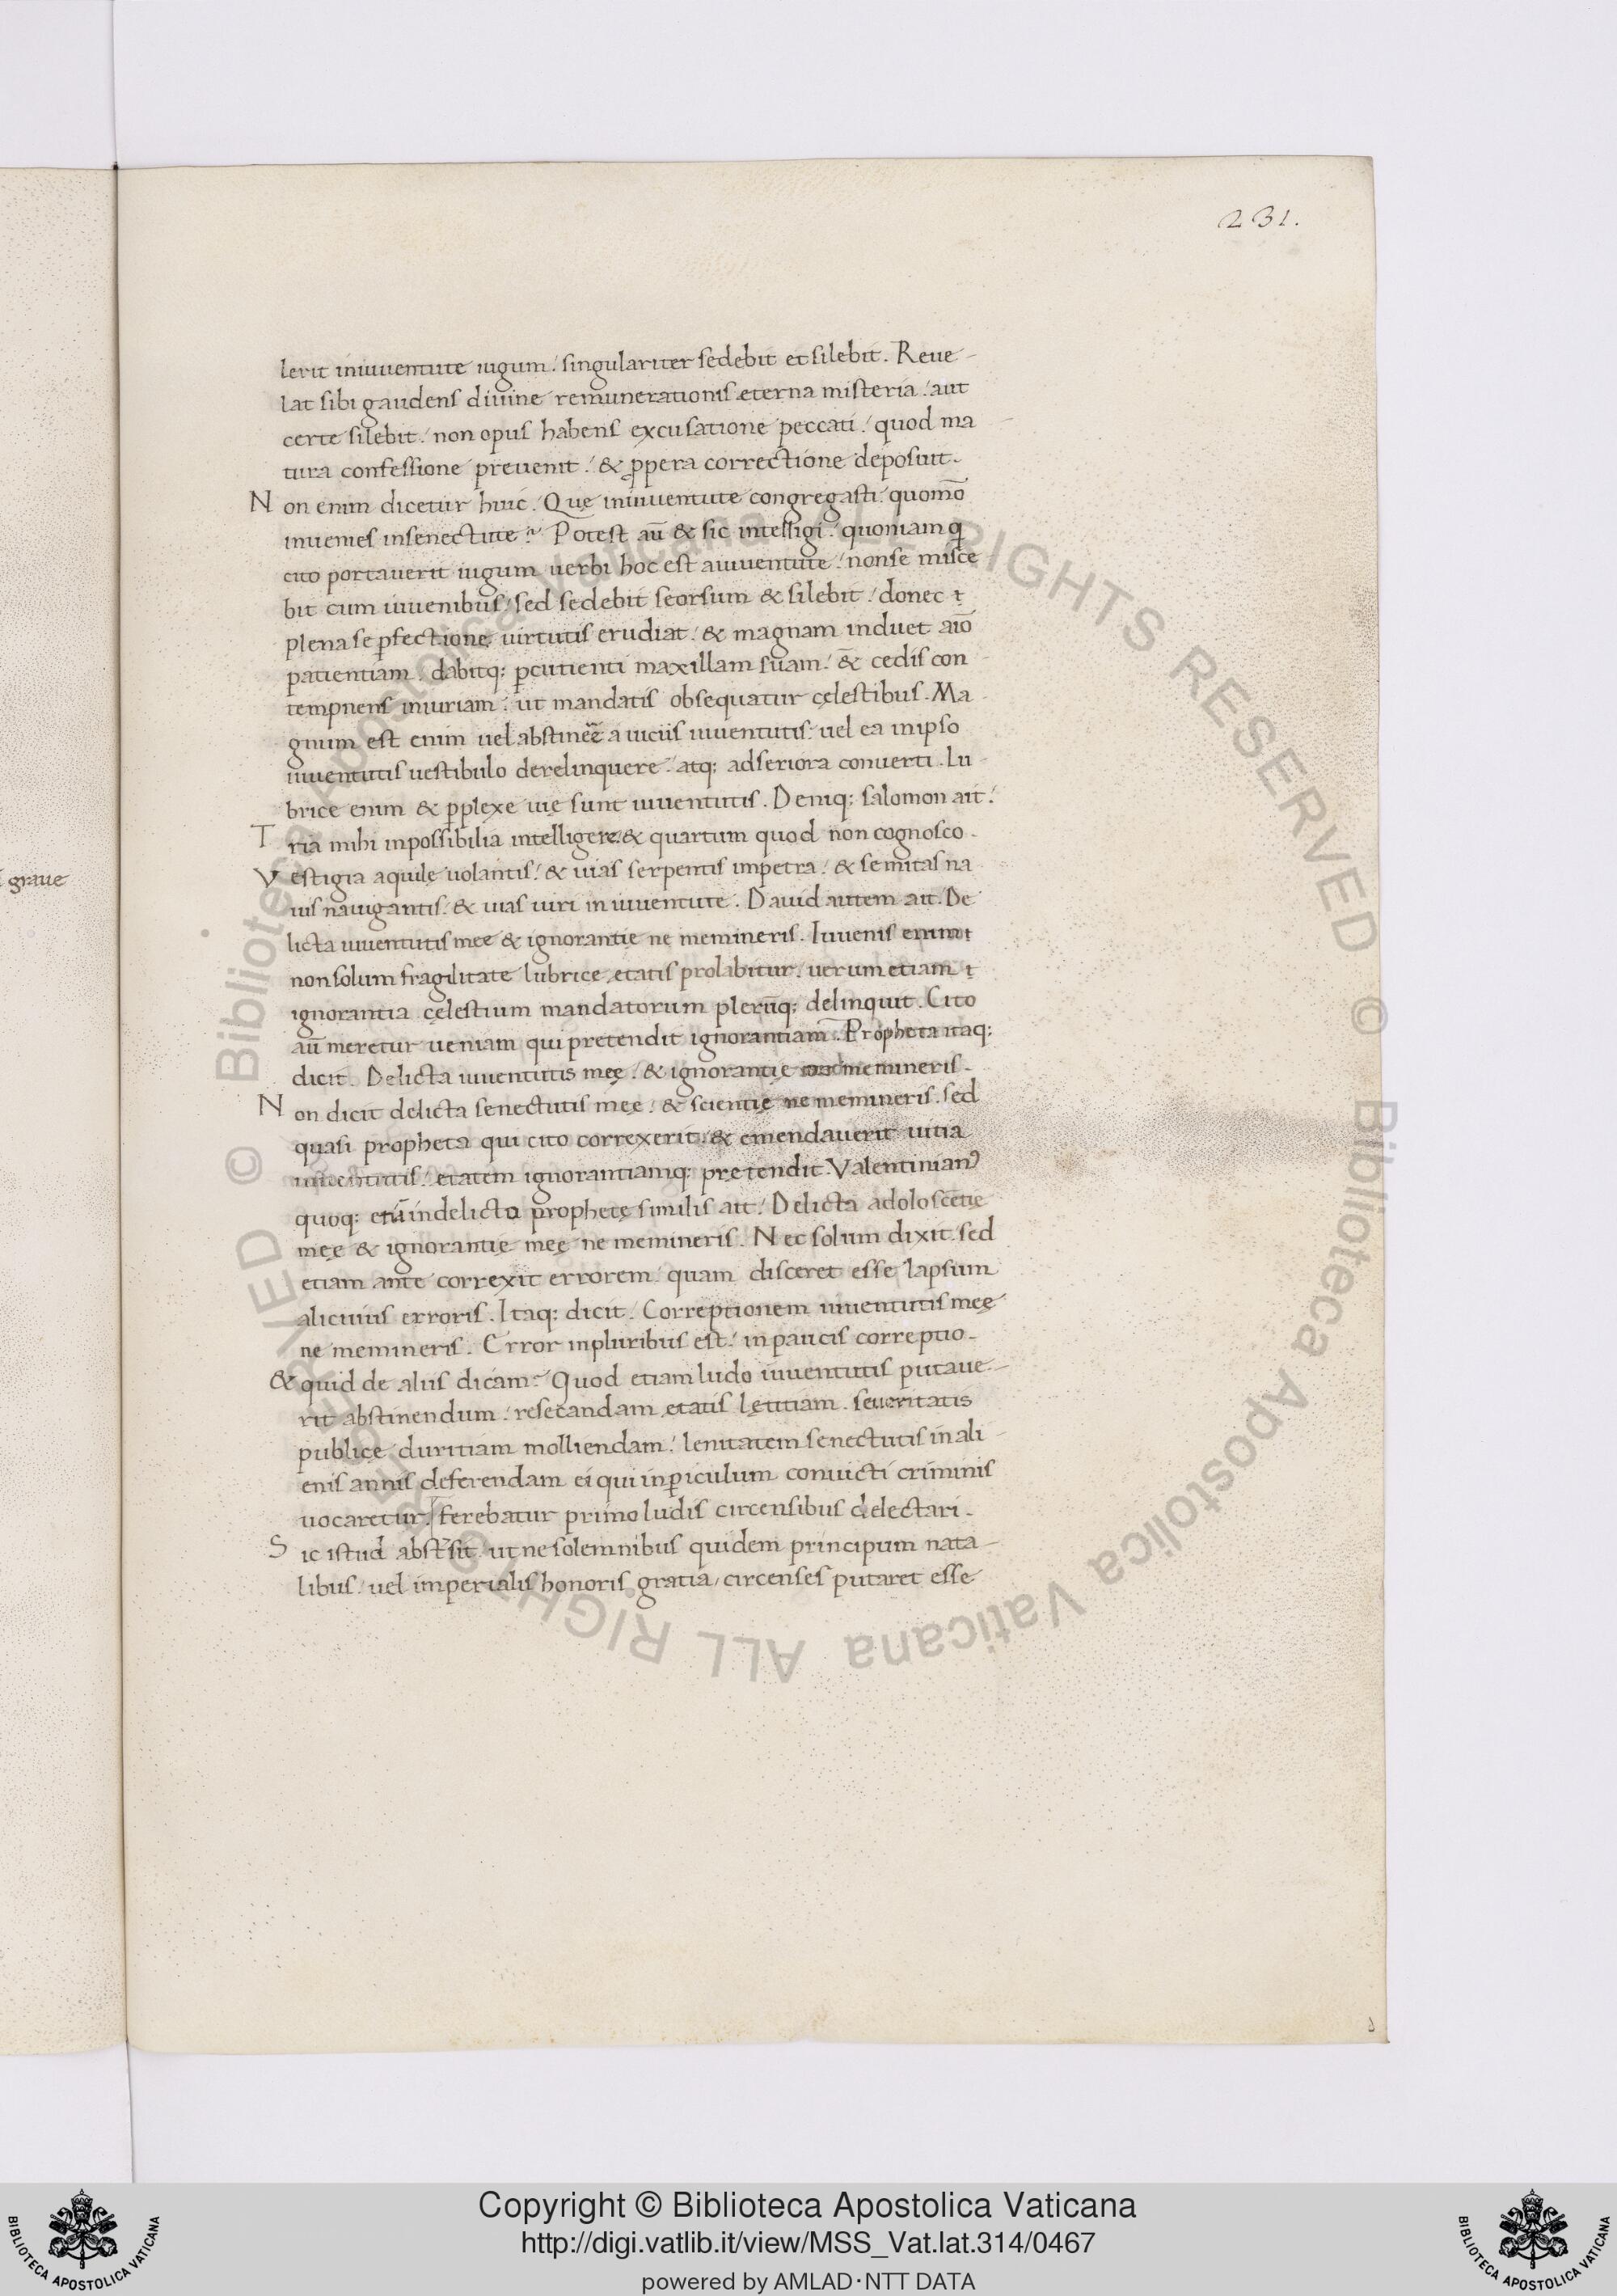 231.
lerit iniuuentute iugum. singulariter sedebit et silebit. Reue-
lat sibi gaudens diuine remunerationis eterna misteria. aut
certe silebit. non opus habens excusatione peccati. quod ma
tura confessione preuenit. & ꝓpera correctione deposuit.
Non enim dicetur huic. Quę iniuuentute congregasti. quom̄o
inuenies insenectute? Potest aū & sic intelligi. quoniam q̄
cito portauerit iugum uerbi hoc est aiuuentute. nonse misce
bit cum iuuenibus. sed sedebit seorsum & silebit. donec ī
plena se ꝑfectione uirtutis erudiat. & magnam induet aīo
patientiam. dabitq; ꝑcutienti maxillam suam. & cedis con
tempnens iniuriam. ut mandatis obsequatur cęlestibus. Ma
gnum est enim uel abstineē a uiciis iuuentutis. uel ea inipso
iuuentutis uestibulo derelinquere. atq; adseriora conuerti. Lu
brice enim & ꝑplexe uię sunt iuuentutis. Deniq; salomon ait.
Tria mihi inpossibilia intelligere. & quartum quod non cognosco.
Vestigia aquilę uolantis. & uias serpentis inpetra. & semitas na
uis nauigantis. & uias uiri in iuuentute. Dauid autem ait. De
licta iuuentutis mee & ignorantię ne memineris. Iuuenis enim
non solum fragilitate lubrice etatis prolabitur. uerum etiam ī
ignorantia cęlestium mandatorum plerūq; delinquit. Cito
aū meretur ueniam qui pretendit ignorantiam. Propheta itaq;
dicit. Delicta iuuentutis meę. & ignorantię memineris.
Non dicit delicta senectutis meę. & scientię ne memineris. sed
quasi propheta qui cito correxerit. & emendauerit uitia
iuuentutis. etatem ignorantiamq; prętendit. Valentinianꝰ
quoq; etiā indelicto prophetę similis ait. Delicta adoloscētię
meę & ignorantię meę ne memineris. Nec solum dixit. sed
etiam ante correxit errorem. quam disceret esse lapsum
alicuius erroris. Itaq; dicit. Correptionem iuuentutis meę
ne memineris. Error inpluribus est. inpaucis correptio.
& quid de aliis dicam? Quod etiam ludo iuuentutis putaue-
rit abstinendum. resecandam etatis lętitiam. seueritatis
publicę duritiam molliendam. lenitatem senectutis in ali
enis annis deferendam ei qui inꝑiculum conuicti criminis
uocaretur. ferebatur primo ludis circensibus delectari.
Sic istud abst̄sit. ut ne solemnibus quidem principum nata
libus. uel imperialis honoris gratia, circenses putaret esse
graue
© Biblioteca Apostolica Vaticana ALL RIGHTS RESERVED © Biblioteca Apostolica Vaticana ALL RIGHTS RESERVED
Copyright © Biblioteca Apostolica Vaticana
http://digi.vatlib.it/view/MSS_Vat.lat.314/0467
powered by AMLAD·NTT DATA
BIBLIOTECA APOSTOLICA VATICANA
BIBLIOTECA APOSTOLICA VATICANA